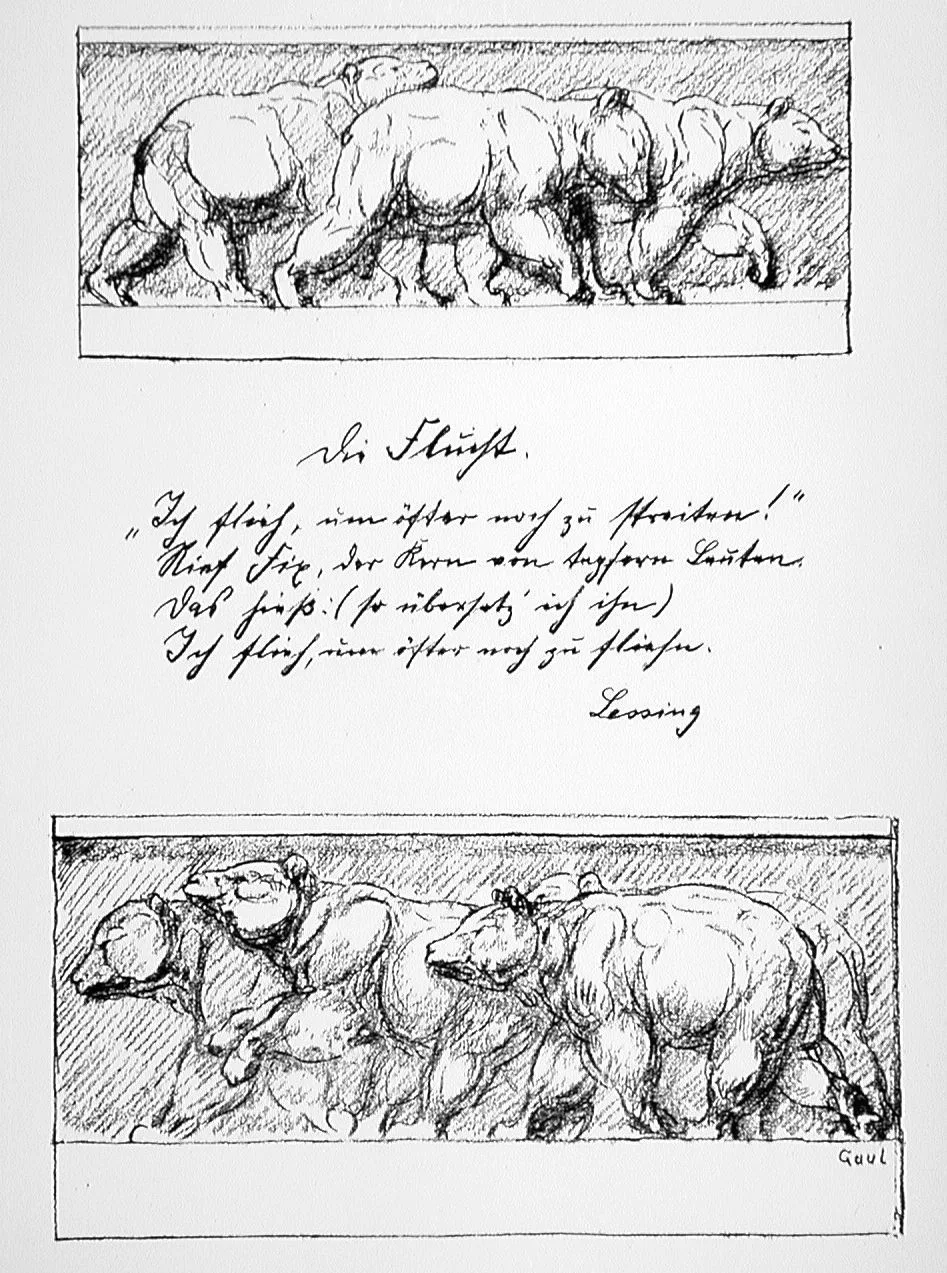 Die Flucht.
„Ich flieh, um öfter noch zu streiten!“
Rief Fix, der Kern von tapfern Leuten.
Das hieß: (so übersetz' ich ihn)
Ich flieh, um öfter noch zu fliehn.
Lessing
Gaul